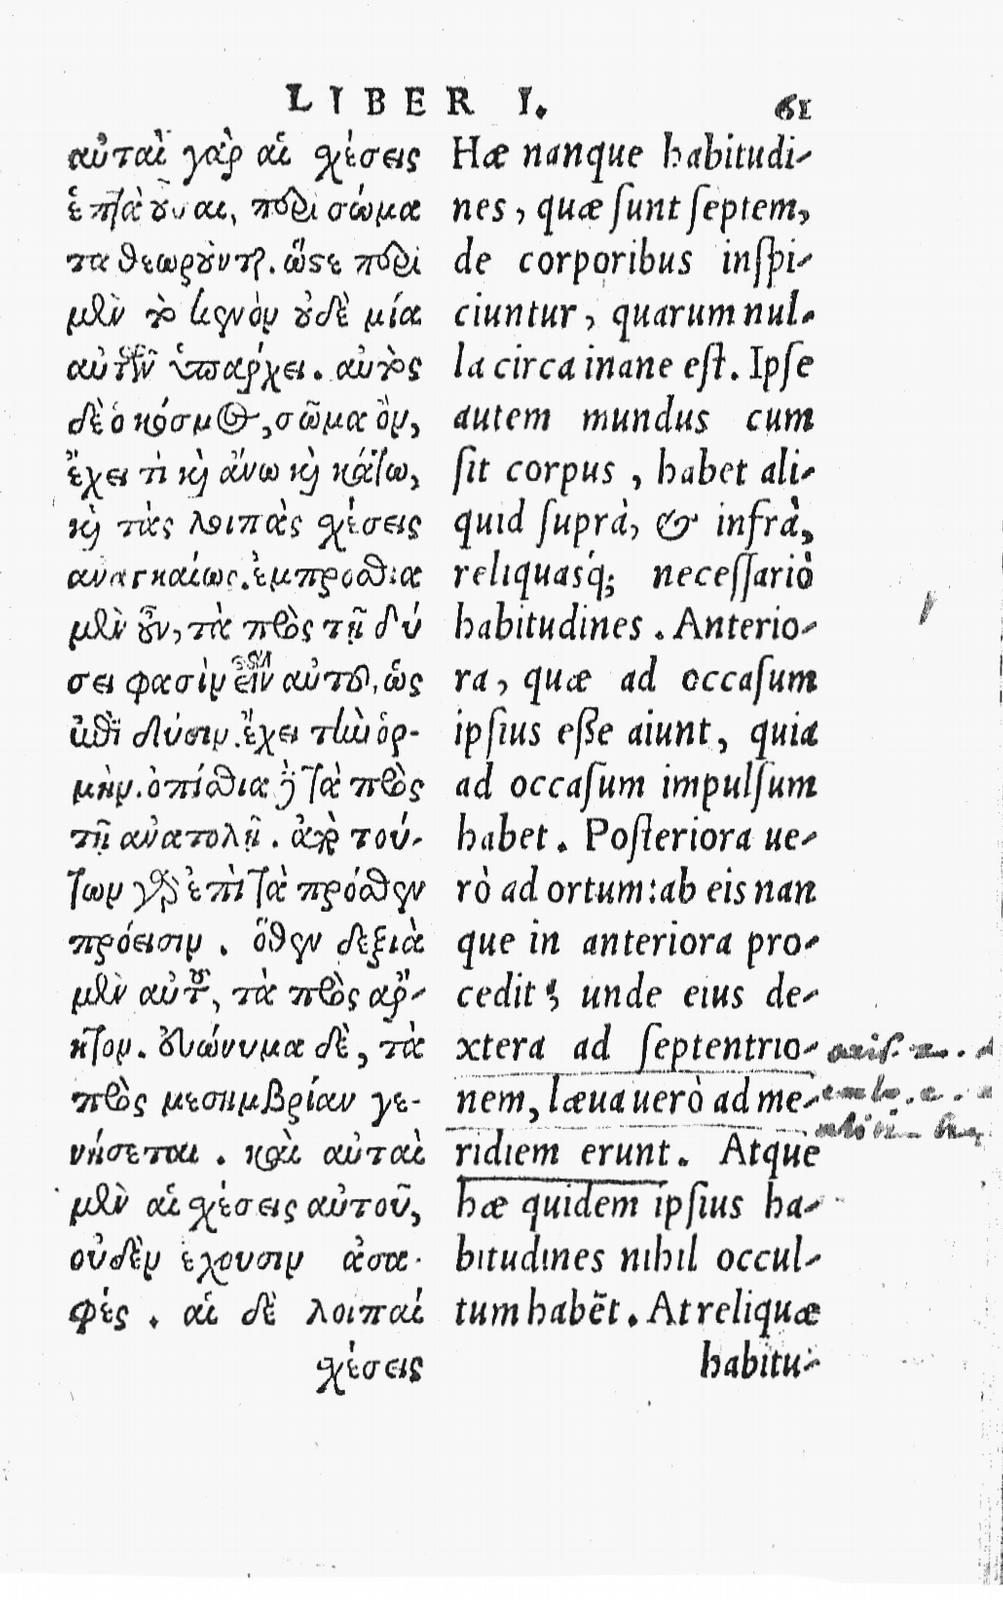 LIBER I. 61
αὗται γὰρ αἱ σχέσεις
ἑπτὰ οὖσαι, περὶ σώμα
τα θεωροῦνται. ὥστε περὶ
μὲν τὸ κενὸν οὐδὲ μία
αὐτῶν ὑπάρχει. αὐτὸς
δὲ ὁ κόσμος, σῶμα ὂν,
ἔχει τὶ καὶ ἄνω καὶ κάτω,
καὶ τὰς λοιπὰς σχέσεις
αναγκαίως. ἐμπρόσθια
μὲν οὖν, τὰ πρὸς τῇ δύ
σει φασὶν εἶν αὐτοῦ, ὡς
ἐπὶ δύσιν. ἔχει τὴν ὁρ-
μὴν. ὀπίσθια δὲ τὰ πρὸς
τῇ ἀνατολῇ. ἀπὸ τού-
των γὰρ ἐπὶ τὰ πρόσθεν
πρόεισιν. ὅθεν δεξιὰ
μὲν αὐτοῦ, τὰ πρὸς ἄρ-
κτον. εὐώνυμα δὲ, τὰ
πρὸς μεσημβρίαν γε-
νήσεται. καὶ αὗται
μὲν αἱ σχέσεις αὐτοῦ,
οὐδὲν ἐχουσιν ἀσα-
φές. αἱ δὲ λοιπαί
σχέσεις
Hæ nanque habitudi-
nes, quæ ſunt ſeptem,
de corporibus inſpi-
ciuntur, quarum nul-
la circa inane eſt. Ipſe
autem mundus cum
ſit corpus, habet ali-
quid ſuprà, & infrà,
reliquasq́; neceſſariò
habitudines. Anterio-
ra, quæ ad occaſum
ipſius eſſe aiunt, quia
ad occaſum impulſum
habet. Poſteriora ue-
rò ad ortum: ab eis nan
que in anteriora pro-
cedit; unde eius de-
xtera ad ſeptentrio-
nem, læua uerò ad me-
ridiem erunt. Atque
hæ quidem ipſius ha-
bitudines nihil occul-
tum habẽt. At reliquæ
habitu-